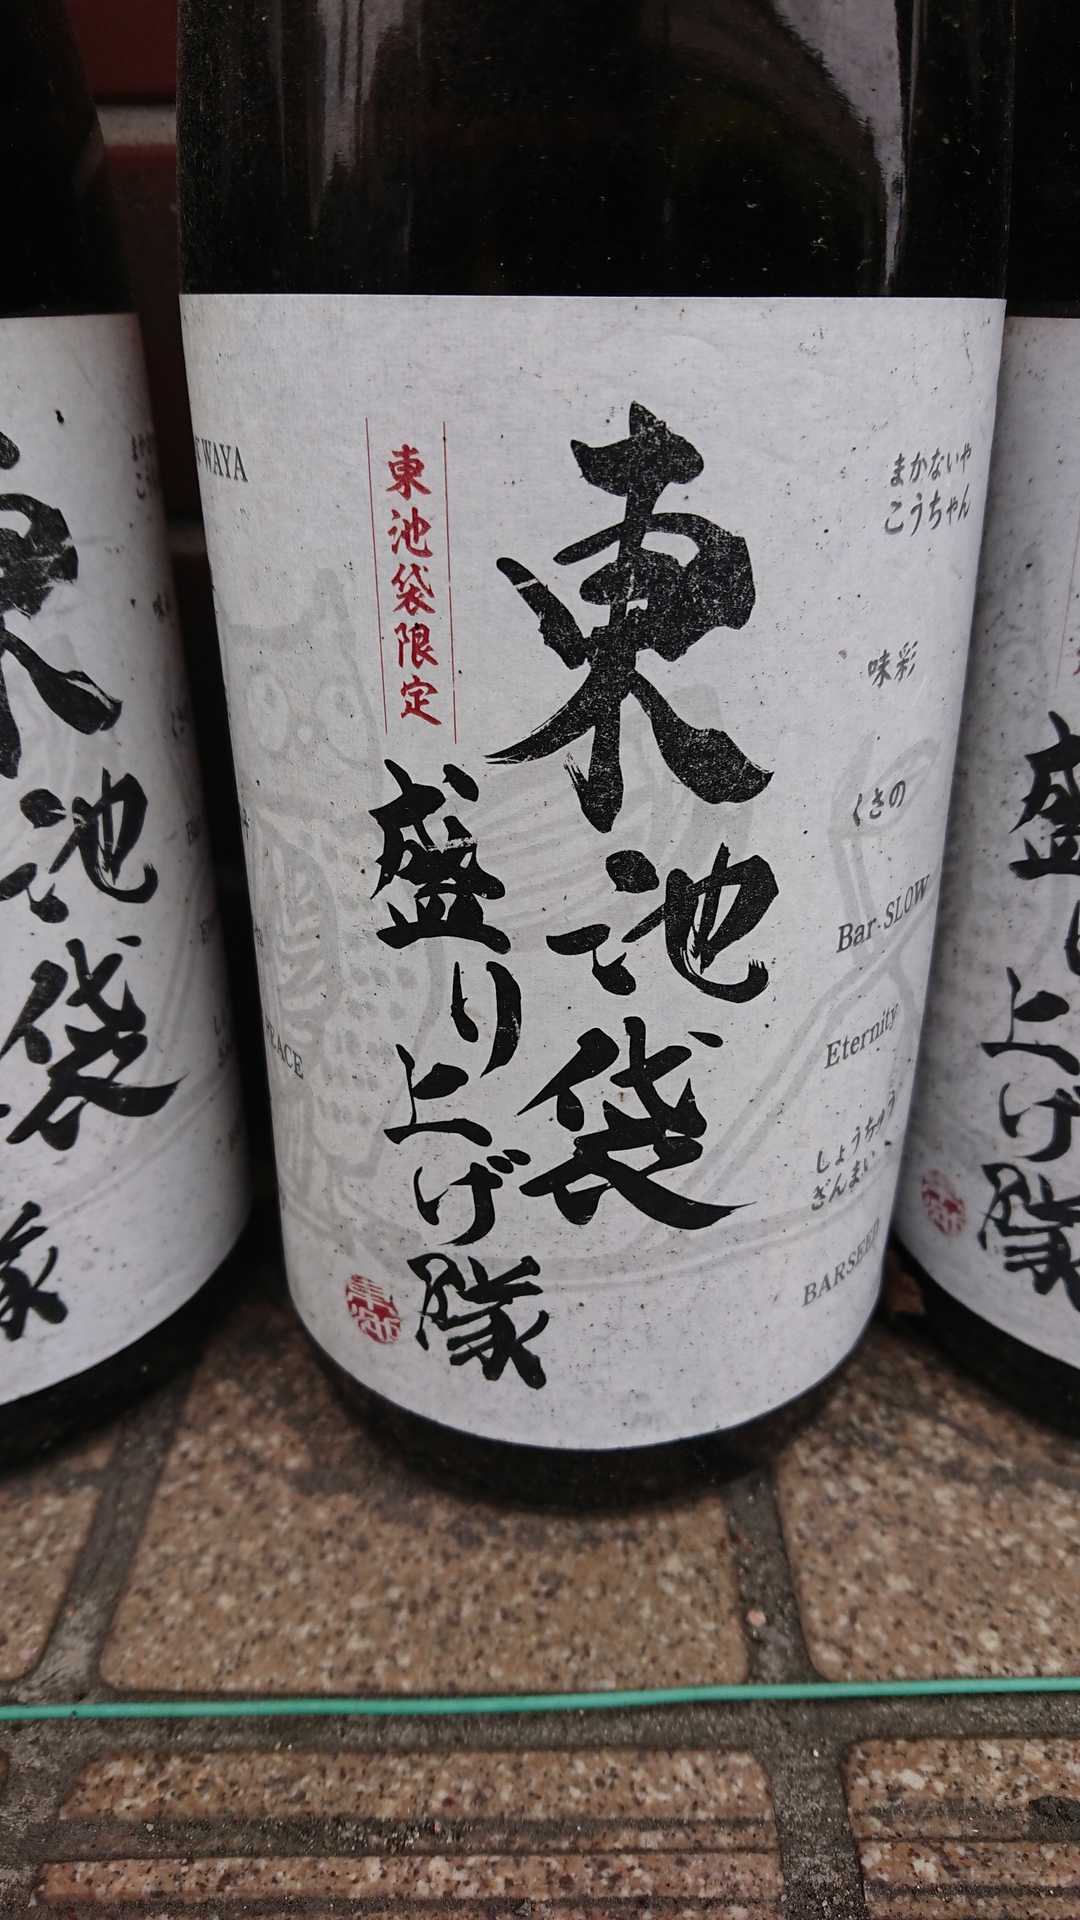 東池袋
盛り上げ隊
東池袋限定
まかないや
こうちゃん
味彩
くさの
Bar SLOW
Eternity
しょうちゅう
ざんまい
BARSEED
WAYA
東
池
袋
隊
盛
上げ
隊